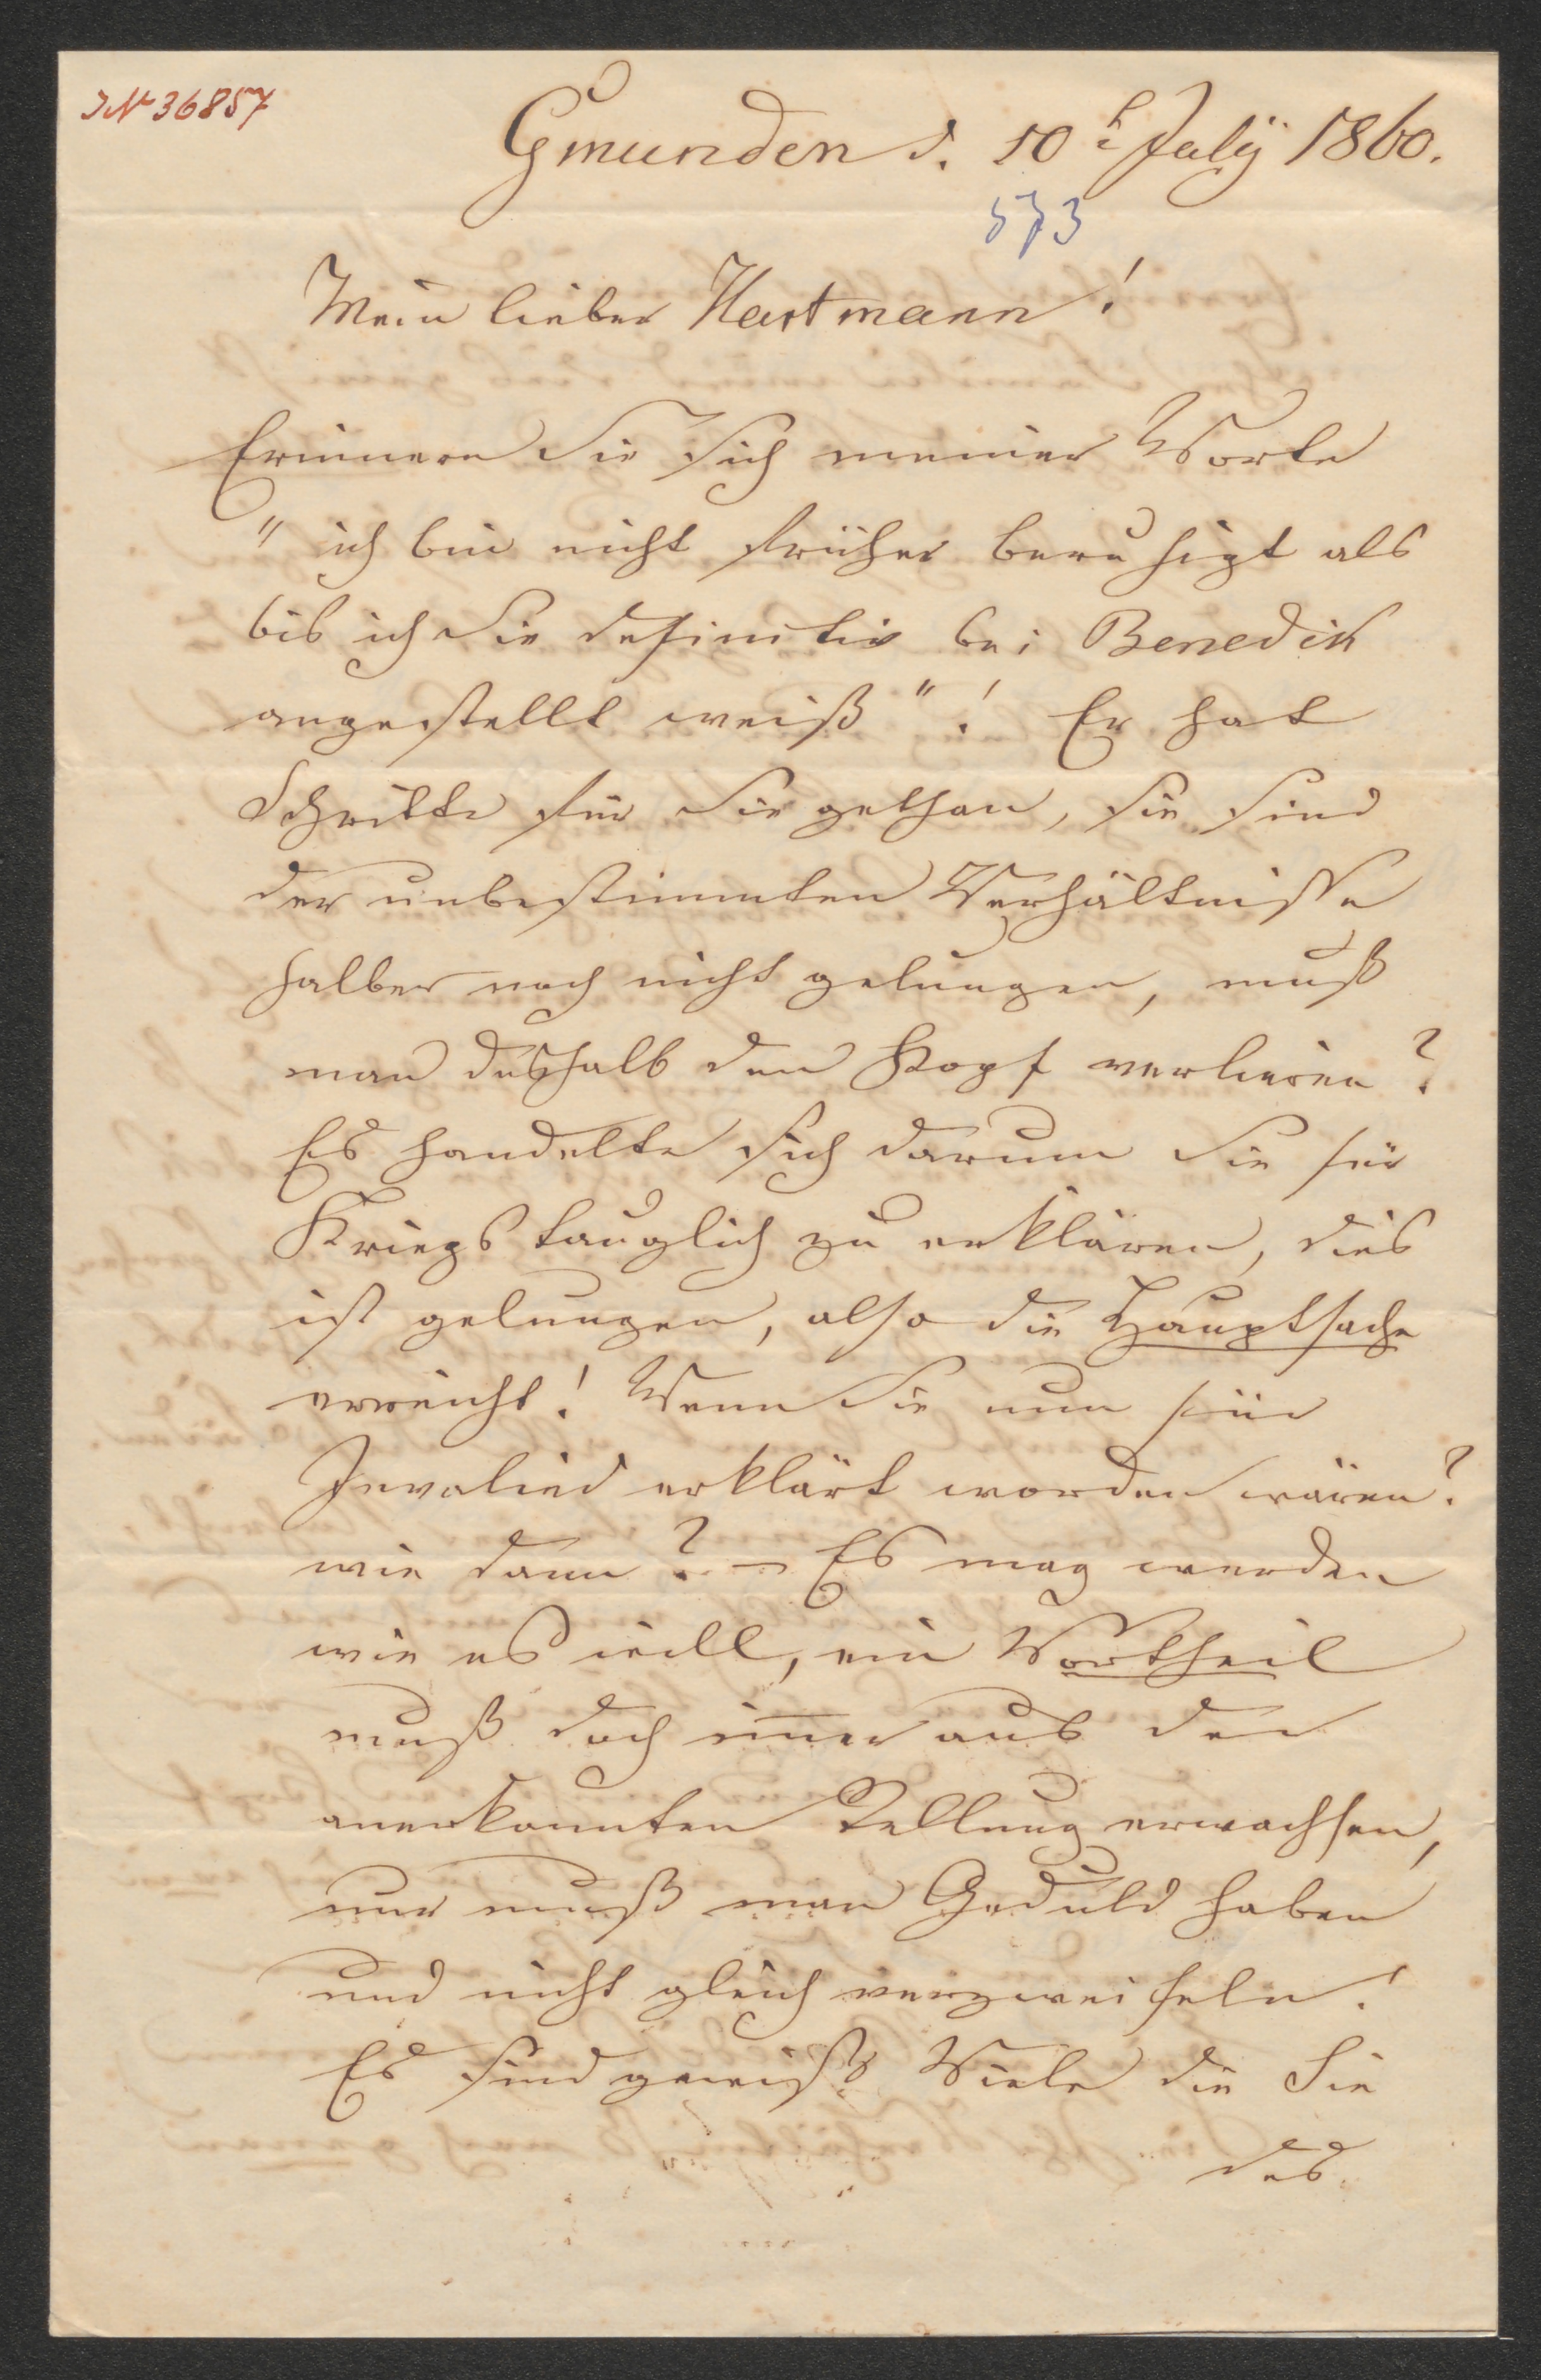 IN 36857
Gmunden d. 10t July 1860.
573
Mein lieber Hartmann!
Erinnern Sie sich meiner Worte
"ich bin nicht früher beruhigt als
bis ich Sie definitiv bei Benedik
angestellt weiß"! Er hat
Schritte für Sie gethan, sie sind
der unbestimmten Verhältnisse
halber noch nicht gelungen, muß
man deßhalb den Kopf verlieren?
Es handelte sich darum Sie für
Kriegstauglich zu erklären, dies
ist gelungen, also die Hauptsache
erreicht! Wenn Sie nun für
Invalied erklärt worden wären?
wie dann? – Es mag werden
wie es will, ein Vortheil
muß doch im̄er aus der
anerkannten Stellung erwachsen,
nur muß man Geduld haben
und nicht gleich verzweifeln!
Es sind gewiß Viele die Sie
des